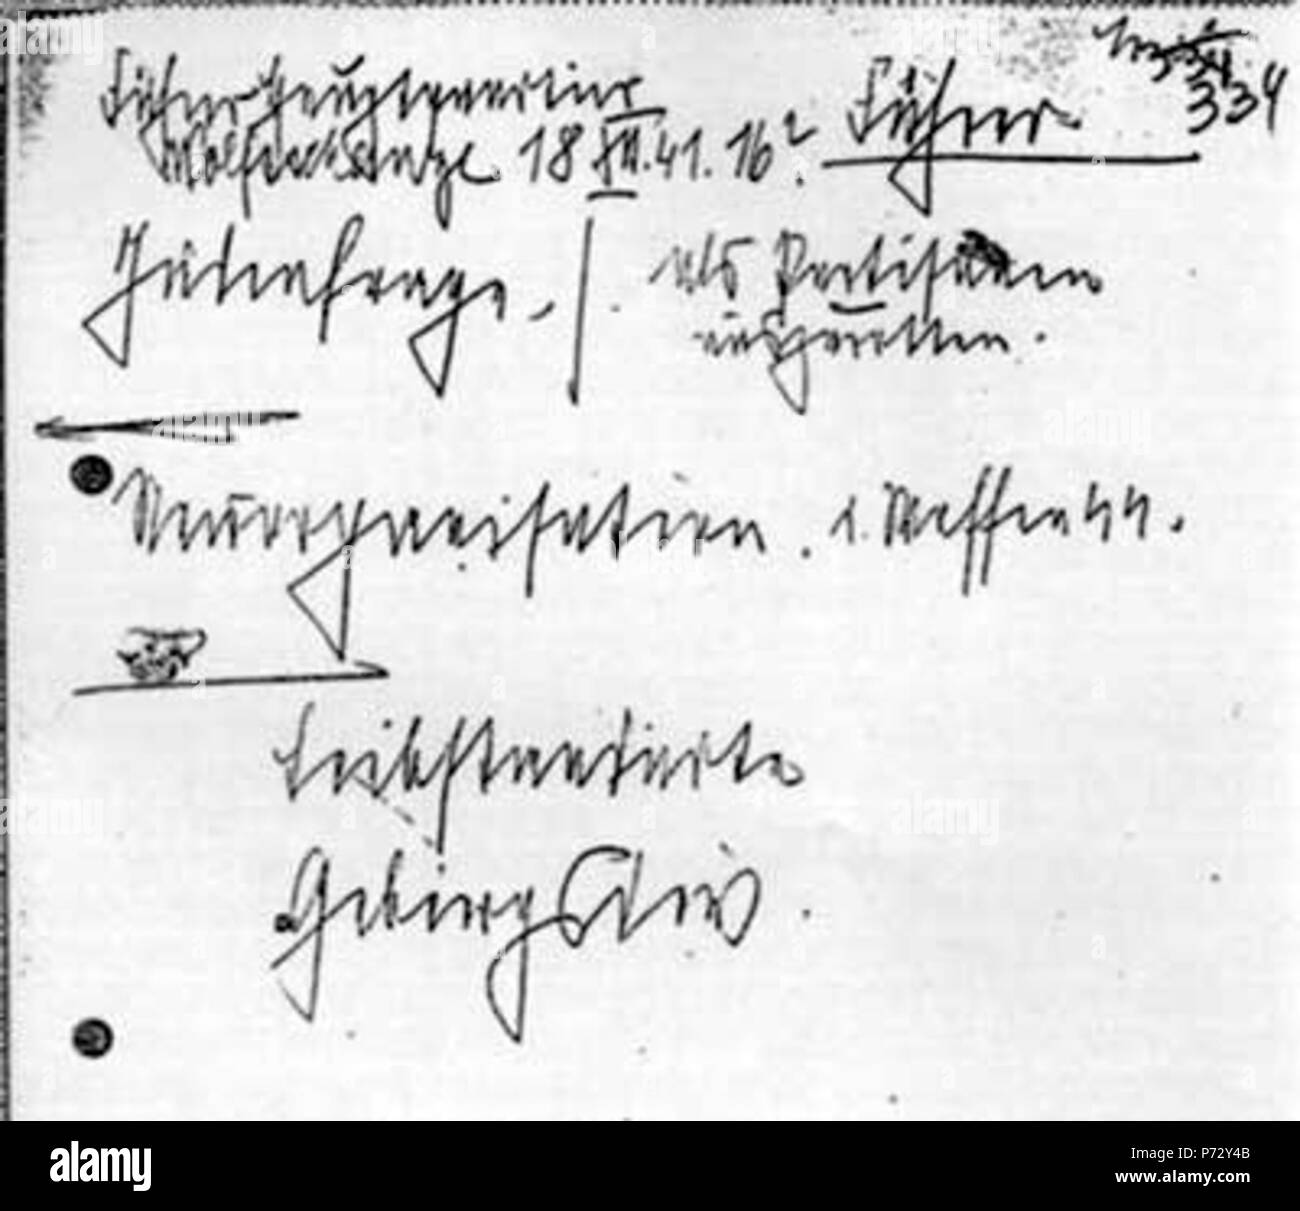 334
Führerhauptquartier
Wolfsschanze 18 XII. 41. 16² Führer
Judenfrage. | als Partisanen
auszurotten.
Neuorganisation. d. Waffen SS.
Leibstandarte
GebirgsDiv.
alamy
Image ID: P72Y4B
www.alamy.com